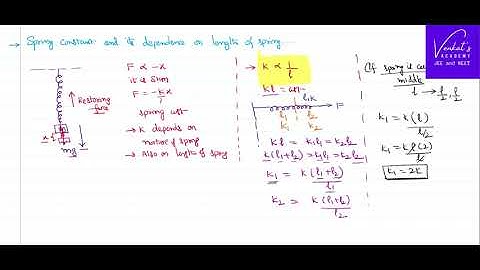 → Spring constant and its dependence on length of spring
F ∝ -x
it is SHM
F = -kx
spring const
→ K depends on
nature of spring
→ Also on length of spring
Restoring
force
x
mg
→ K ∝ 1/l
Kl = const
l, k
F
l₁ l₂
k₁ k₂
Kl = k₁l₁ = k₂l₂
k(l₁+l₂) = k₁l₁ = k₂l₂
k₁ = k(l₁+l₂)/l₁
k₂ = k(l₁+l₂)/l₂
(If spring is cu
middle
l → l/2, l/2
k₁ = k(l)/l/2
k₁ = kl(2)/l
k₁ = 2k
Venkat's
ACADEMY
JEE and NEET